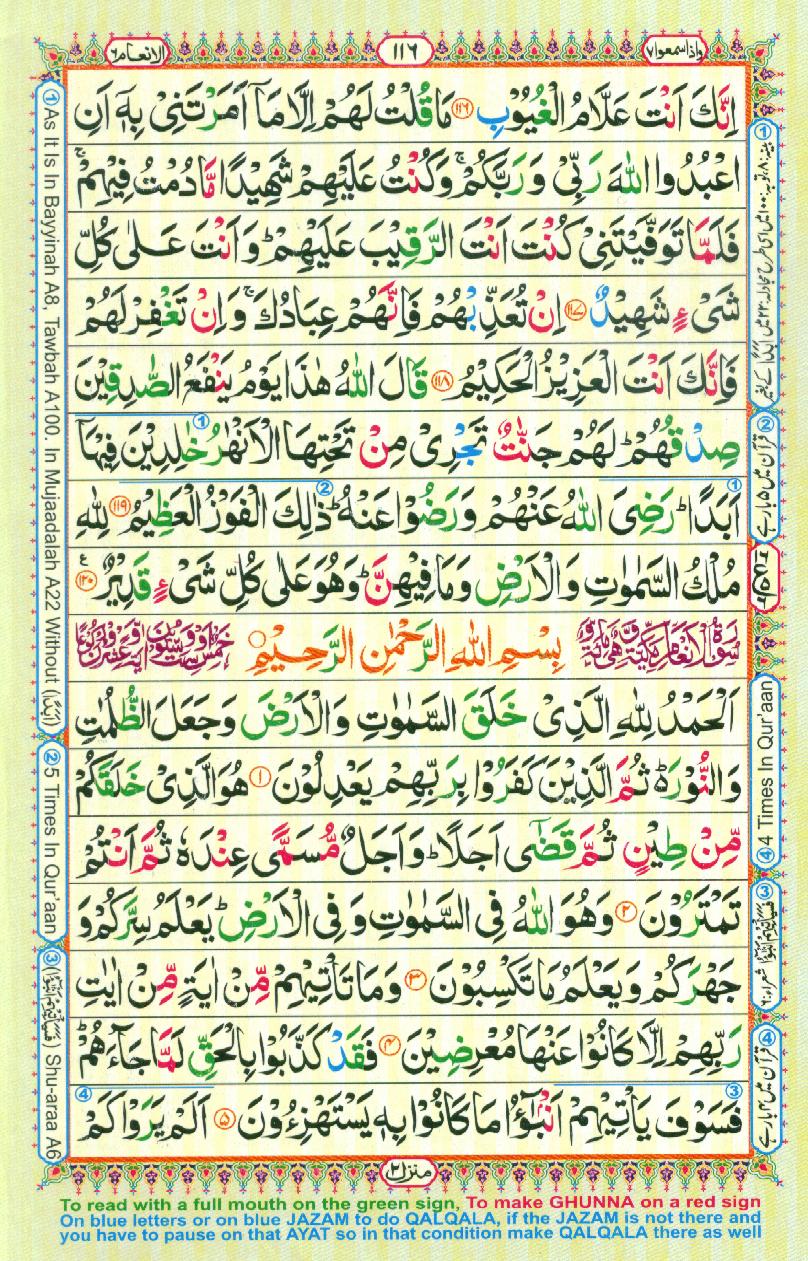 الانعام ٦
١١٦
واذا سمعوا ٧
اِنَّكَ اَنْتَ عَلَّامُ الْغُيُوْبِ ﴿١١٦﴾ مَا قُلْتُ لَهُمْ اِلَّا مَاۤ اَمَرْتَنِیْ بِهٖۤ اَنِ
اعْبُدُوا اللّٰهَ رَبِّیْ وَ رَبَّكُمْ ۚ وَكُنْتُ عَلَيْهِمْ شَهِيْدًا مَّا دُمْتُ فِيْهِمْ ۚ
فَلَمَّا تَوَفَّيْتَنِیْ كُنْتَ اَنْتَ الرَّقِيْبَ عَلَيْهِمْ ؕ وَ اَنْتَ عَلٰی كُلِّ
شَیْءٍ شَهِيْدٌ ﴿١١٧﴾ اِنْ تُعَذِّبْهُمْ فَاِنَّهُمْ عِبَادُكَ ۚ وَ اِنْ تَغْفِرْ لَهُمْ
فَاِنَّكَ اَنْتَ الْعَزِيْزُ الْحَكِيْمُ ﴿١١٨﴾ قَالَ اللّٰهُ هٰذَا يَوْمُ يَنْفَعُ الصّٰدِقِيْنَ
صِدْقُهُمْ ؕ لَهُمْ جَنّٰتٌ تَجْرِیْ مِنْ تَحْتِهَا الْاَنْهٰرُ خٰلِدِيْنَ فِيْهَاۤ
اَبَدًا ؕ رَضِیَ اللّٰهُ عَنْهُمْ وَ رَضُوْا عَنْهُ ؕ ذٰلِكَ الْفَوْزُ الْعَظِيْمُ ﴿١١٩﴾ لِلّٰهِ
مُلْكُ السَّمٰوٰتِ وَ الْاَرْضِ وَ مَا فِيْهِنَّ ؕ وَ هُوَ عَلٰی كُلِّ شَیْءٍ قَدِيْرٌ ﴿١٢٠﴾
سُوْرَةُ الْاَنْعَامِ مَكِّيَّةٌ وَّهِیَ مِائَةٌ وَّ بِسْمِ اللّٰهِ الرَّحْمٰنِ الرَّحِيْمِ خَمْسٌ وَّسِتُّوْنَ اٰيَةً وَّعِشْرُوْنَ رُكُوْعًا
اَلْحَمْدُ لِلّٰهِ الَّذِیْ خَلَقَ السَّمٰوٰتِ وَ الْاَرْضَ وَ جَعَلَ الظُّلُمٰتِ
وَ النُّوْرَ ؕ۬ ثُمَّ الَّذِيْنَ كَفَرُوْا بِرَبِّهِمْ يَعْدِلُوْنَ ﴿١﴾ هُوَ الَّذِیْ خَلَقَكُمْ
مِّنْ طِيْنٍ ثُمَّ قَضٰۤی اَجَلًا ؕ وَ اَجَلٌ مُّسَمًّی عِنْدَهٗ ثُمَّ اَنْتُمْ
تَمْتَرُوْنَ ﴿٢﴾ وَ هُوَ اللّٰهُ فِی السَّمٰوٰتِ وَ فِی الْاَرْضِ ؕ يَعْلَمُ سِرَّكُمْ وَ
جَهْرَكُمْ وَ يَعْلَمُ مَا تَكْسِبُوْنَ ﴿٣﴾ وَ مَا تَاْتِيْهِمْ مِّنْ اٰيَةٍ مِّنْ اٰيٰتِ
رَبِّهِمْ اِلَّا كَانُوْا عَنْهَا مُعْرِضِيْنَ ﴿٤﴾ فَقَدْ كَذَّبُوْا بِالْحَقِّ لَمَّا جَآءَهُمْ ؕ
فَسَوْفَ يَاْتِيْهِمْ اَنْۢبٰٓؤُا مَا كَانُوْا بِهٖ يَسْتَهْزِءُوْنَ ﴿٥﴾ اَلَمْ يَرَوْا كَمْ
منزل ٢
① As It Is In Bayyinah A8, Tawbah A100. In Mujaadalah A22 Without (اَبَدًا)
② 5 Times In Qur'aan
③ (فَسَيَاْتِيْهِمْ اَنْۢبٰٓؤُا) Shu-araa A6
② قرآن میں ۵ بار ہے
④ 4 Times In Qur'aan
③ فَسَيَاْتِيْهِمْ اَنْۢبٰٓؤُا شعراء ٦
④ قرآن میں ۴ بار ہے
To read with a full mouth on the green sign, To make GHUNNA on a red sign
On blue letters or on blue JAZAM to do QALQALA, if the JAZAM is not there and
you have to pause on that AYAT so in that condition make QALQALA there as well